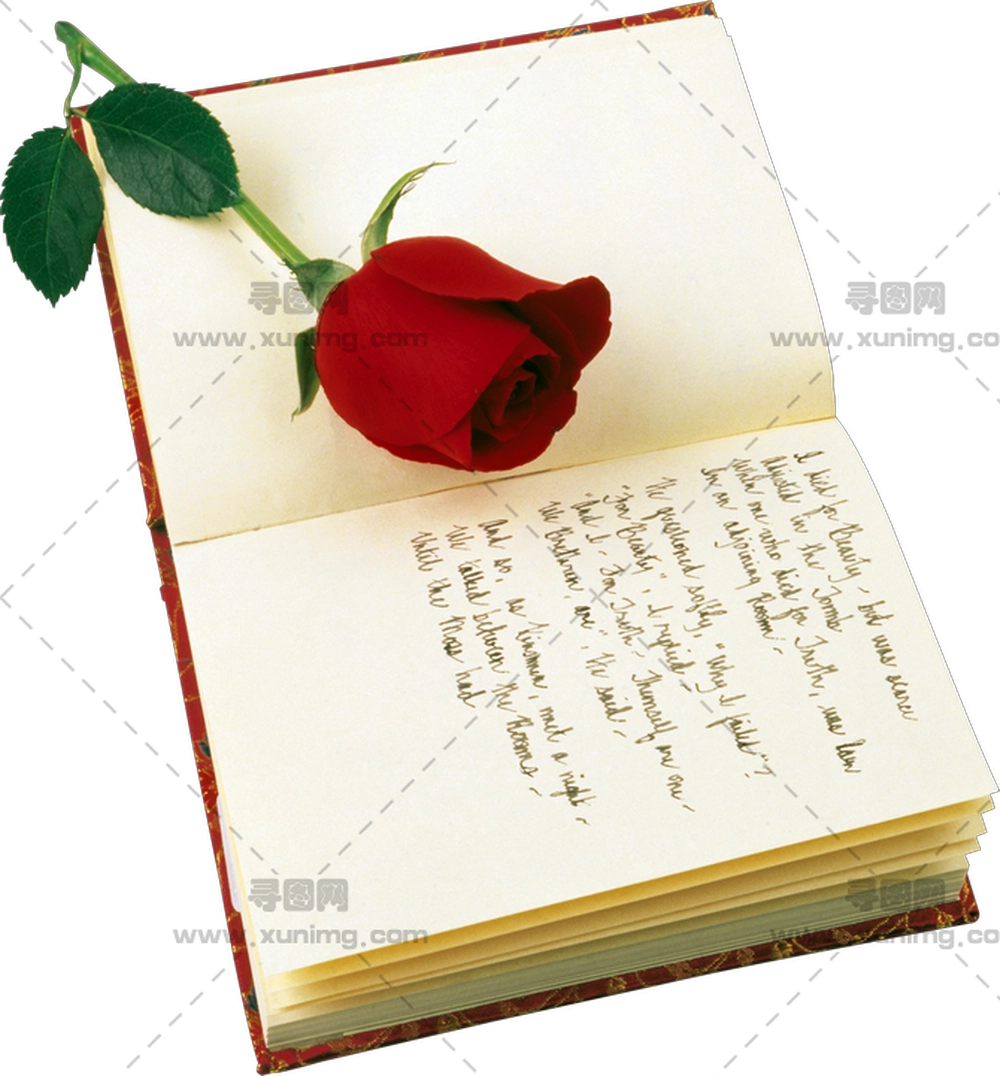 I died for Beauty - but was scarce
Adjusted in the Tomb
When one who died for Truth, was lain
In an adjoining Room -
He questioned softly, "Why I failed"?
"For Beauty", I replied -
"And I - For Truth - Themself are one -
We Brethren, are", He said -
And so, as Kinsmen, met a night -
We talked between the Rooms -
Until the Moss had
寻图网
www.xunimg.com
寻图网
www.xunimg.co
寻图网
www.xunimg.com
寻图网
www.xunimg.co